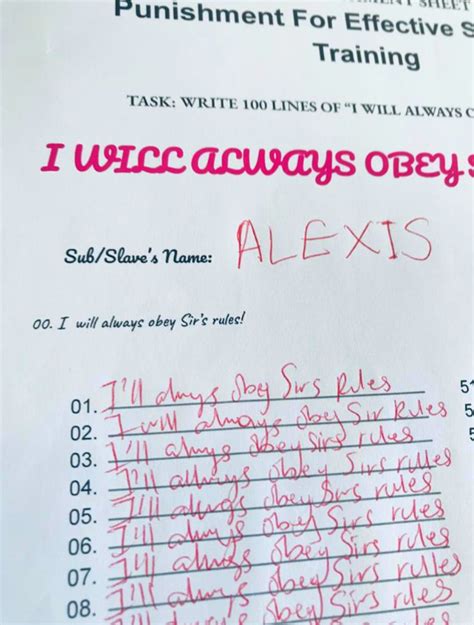 SHEET
Punishment For Effective S
Training
TASK: WRITE 100 LINES OF "I WILL ALWAYS O
I WILL ALWAYS OBEY S
Sub/Slave's Name: ALEXIS
00. I will always obey Sir's rules!
01. I'll always obey Sirs Rules 51
02. I will always obey Sir Rules 5
03. I'll always obey Sirs rules 5
04. I'll always obey Sirs rules
05. I'll always obey Sirs rules
06. I'll always obey Sirs rules
07. I'll always obey Sirs rules
08. I'll always obey Sirs rules
obey Sirs rules